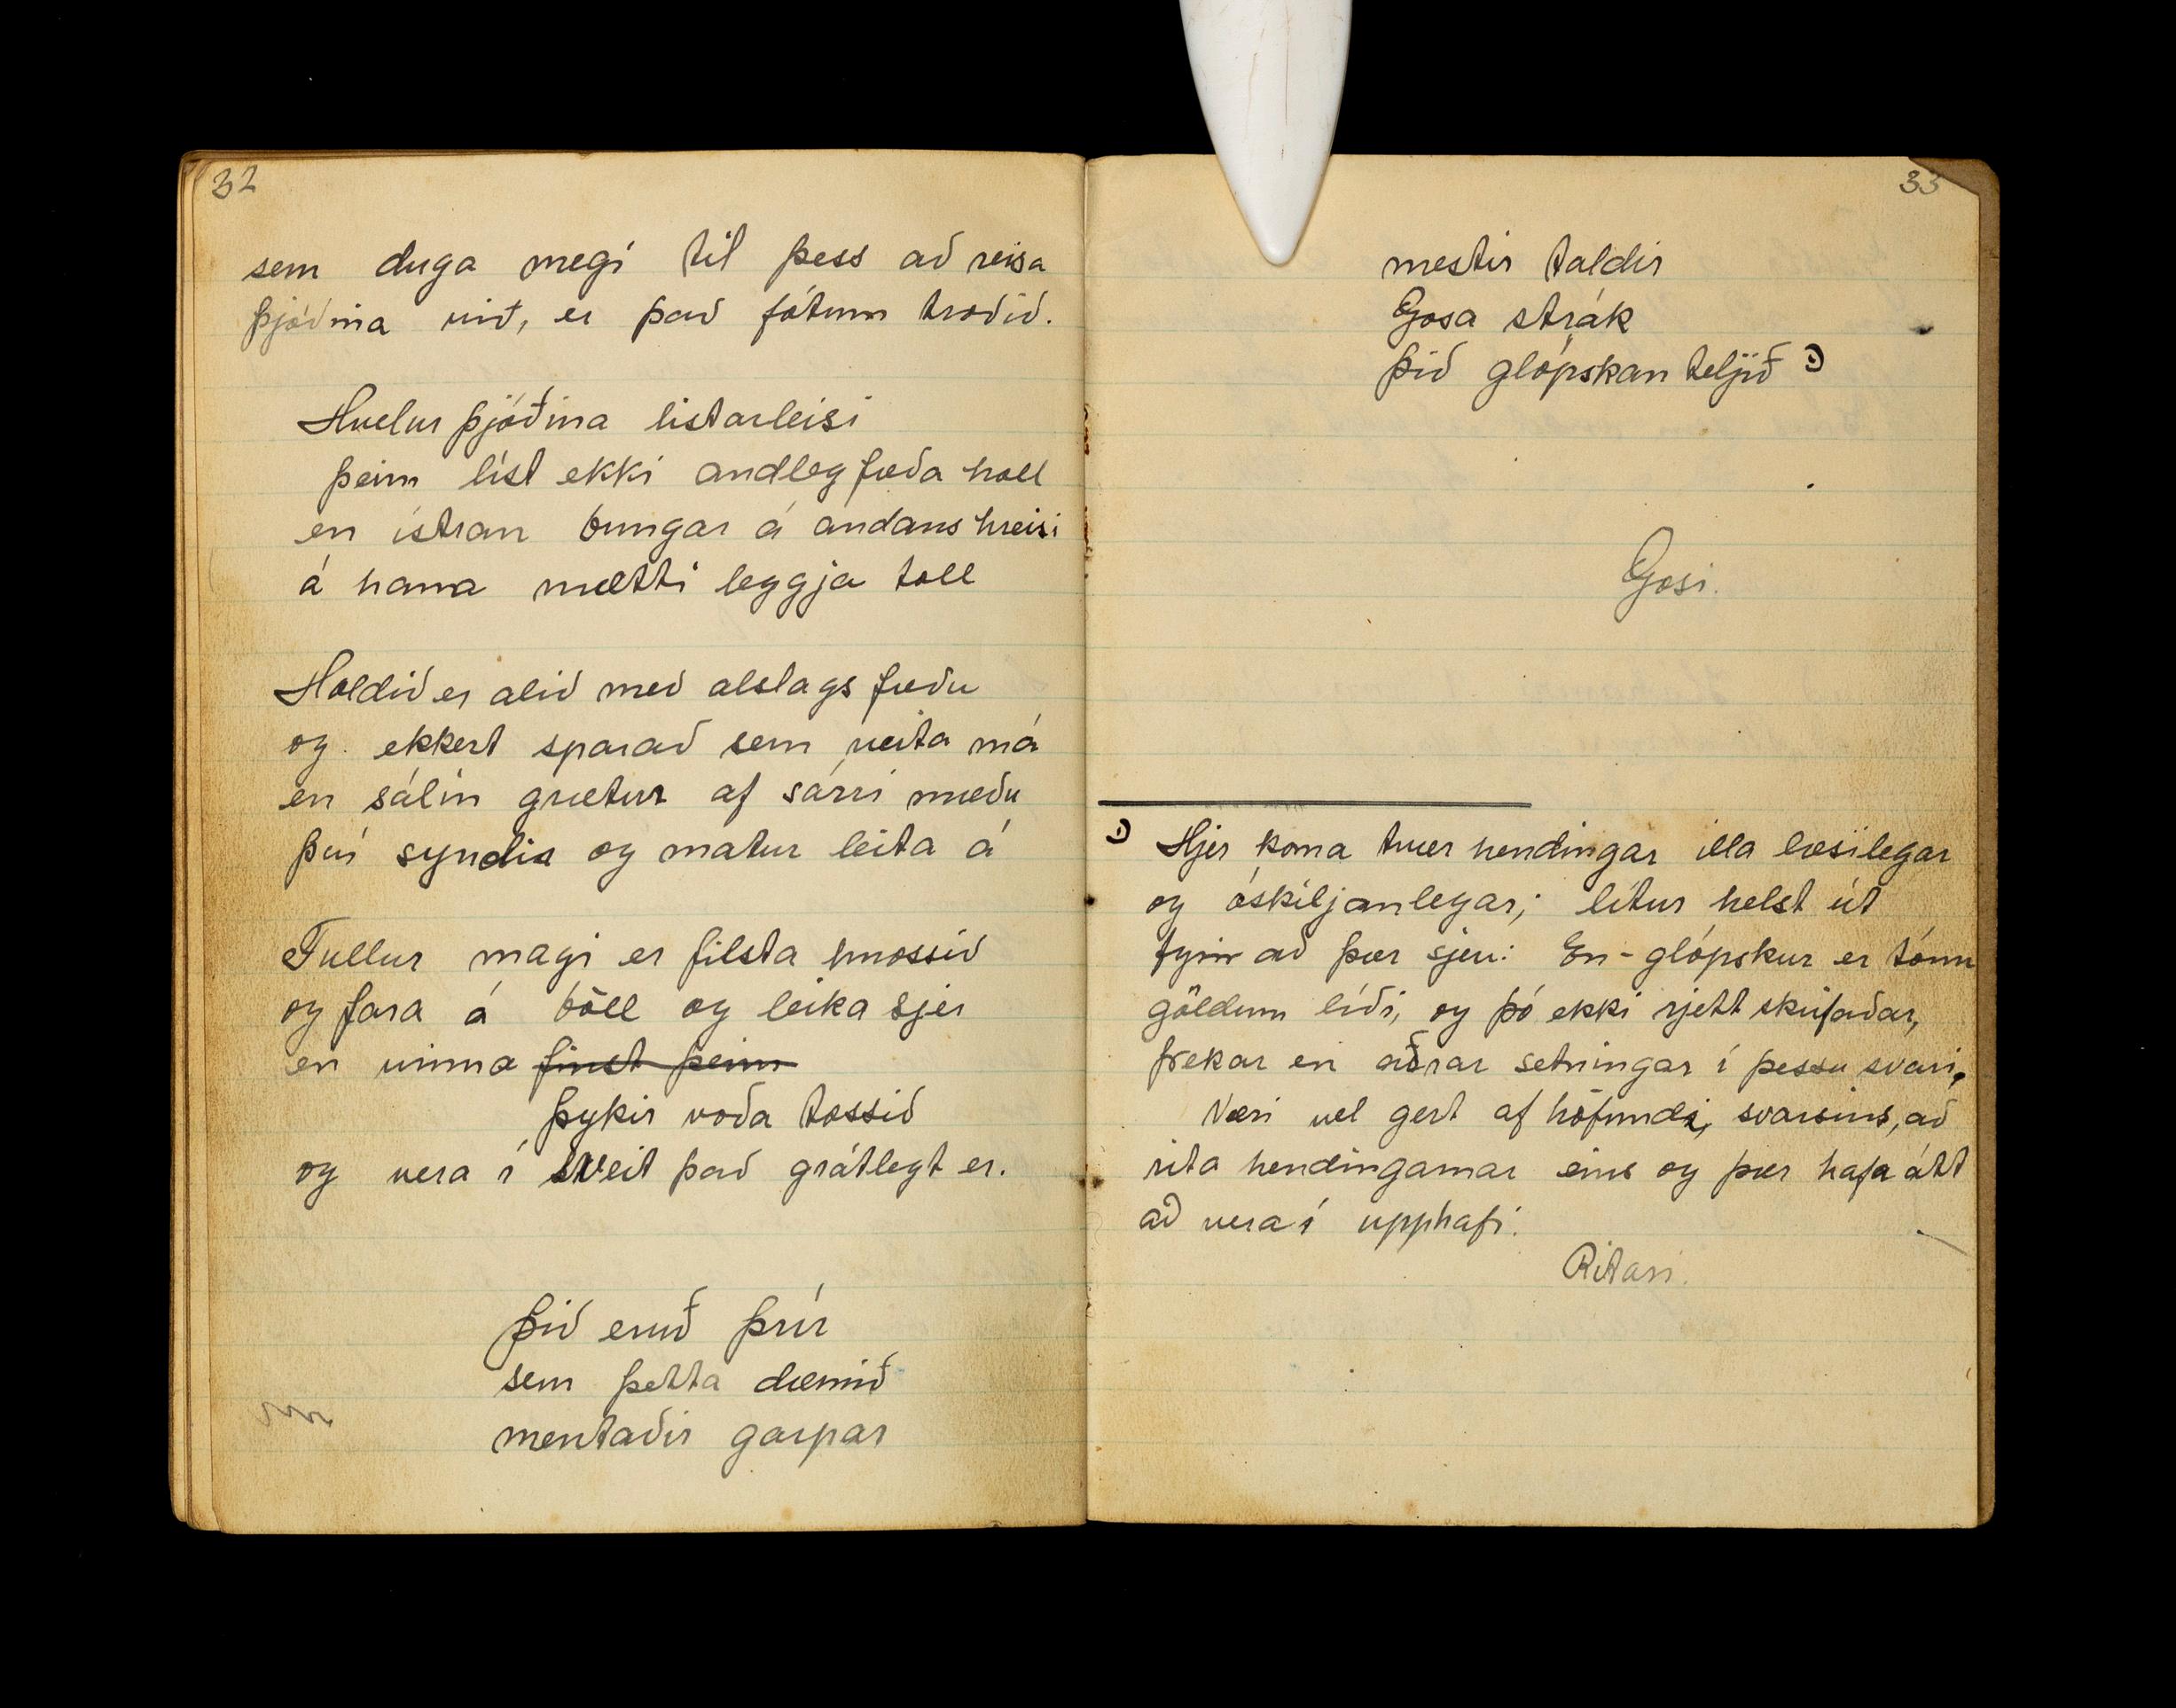 32
sem duga megi til þess að reisa
þjóðina við, er það fótum troðið.
Hvelur þjóðina listarleisi
þeim líst ekki andleg fæða holl
en ístran bungar á andans hreisi
á hana mætti leggja toll
Holdið er alið með alslags fæðu
og ekkert sparað sem veita má
en sálin grætur af sárri mæðu
því syndir og matur leita á
Fullur magi er filsta hnossið
og fara á böll og leika sjer
en vinna finst þeim
þykir voða tossið
og vera í sveit það grátlegt er.
Þið eruð þrír
sem þetta dæmið
mentaðir garpar
33
mestir taldir
Gosa strák
þið glópskan teljið 1)
Gosi.
1) Hjer koma tvær hendingar illa læsilegar
og óskiljanlegar; lítur helst út
fyrir að þær sjeu: En - glópskur er tónn
göldum líði, og þó ekki rjett skrifaðar,
frekar en aðrar setningar í þessu svari.
Væri vel gert af höfundi svarsins, að
rita hendingarnar eins og þær hafa átt
að vera í upphafi.
Ritari.